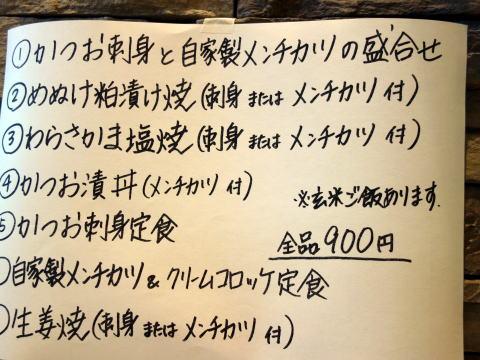 ①かつお刺身と自家製メンチカツの盛合せ
②めぬけ粕漬け焼(刺身またはメンチカツ付)
③わらさかま塩焼(刺身またはメンチカツ付)
④かつお漬丼(メンチカツ付)
※玄米ご飯あります.
⑤かつお刺身定食
全品900円
自家製メンチカツ&クリームコロッケ定食
生姜焼(刺身またはメンチカツ付)